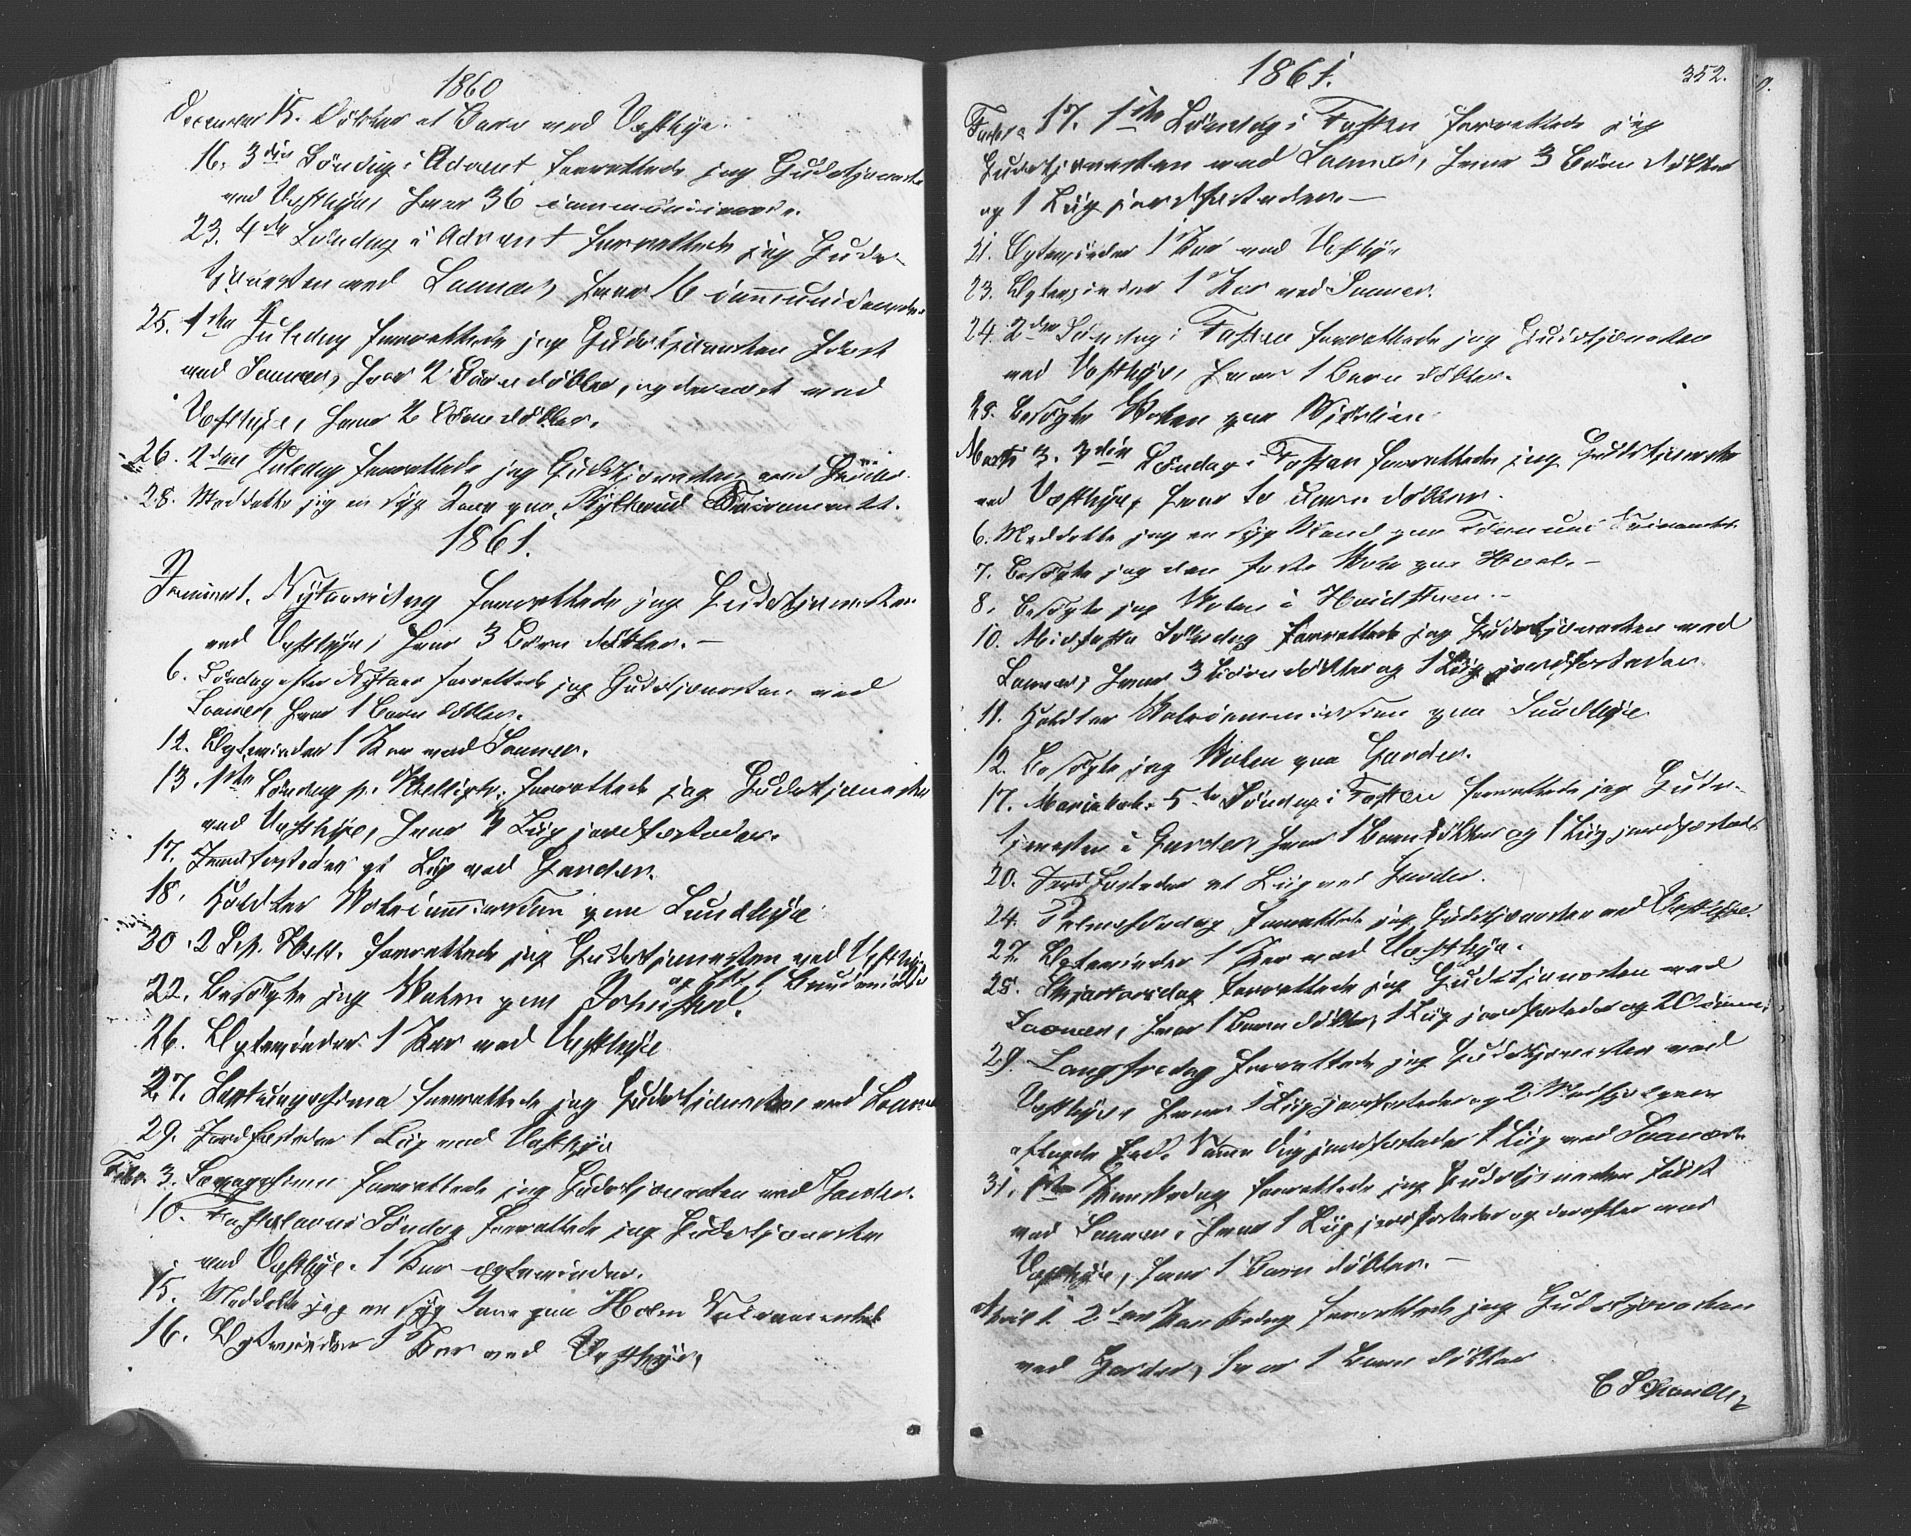 1860
December 15. Døbtes et Barn ved Vestbye.
16. 3die Søndag i Advent forrettede jeg Gudstjeneste
ved Vestbye, hvor 36 communicerede.
23. 4de Søndag i Advent forrettede jeg Guds-
tjenesten ved Saaner, hvor 16 communicerede.
25. 1ste Juledag forrettede jeg Gudstjenesten først
ved Saaner, hvor 2 Børn døbtes, og dernæst ved
Vestbye, hvor 2 Børn døbtes.
26. 2den Juledag forrettede jeg Gudstjenesten ved Garder.
28. Meddelte jeg en syg Kone paa Sacramentet.
1861.
Januar 1. Nytaarsdag forrettede jeg Gudstjenesten
ved Vestbye, hvor 3 Børn døbtes.-
6. Søndag efter Nytaar forrettede jeg Gudstjenesten ved
Saaner, hvor 1 Barn døbtes.
12. Egteviedes 1 Par ved Saaner.
13. 1ste Søndag p. Helligtr. forrettede jeg Gudstjenesten
ved Vestbye, hvor Liig jordfæstedes.
17. Jordfæstedes et Liig ved Garder.
18. Holdtes Skolecommission paa Sundbye
20. 2 S. p. Hell. forrettede jeg Gudstjenesten ved Vestbye
og
22. Besøgte jeg Skolen paa
26. Egteviedes 1 Par ved Vestbye
27. Septuagesima forrettede jeg Gudstjenesten ved Saaner
29. Jordfæstedes 1 Liig ved Vestbye
Febr. 3. Sexagesima forrettede jeg Gudstjenesten ved Garder.
10. Fastelavns Søndag forrettede jeg Gudstjenesten
ved Vestbye. 1 Par egteviedes.
15. Meddelte jeg en syg Kone paa Holm Sacramentet
16. Egteviedes 1 Par ved Vestbye.
1861.
352.
Februar 17. 1ste Søndag i Fasten forrettede jeg
Gudstjenesten ved Saaner, hvor 3 Børn døbtes
og 1 Liig jordfæstedes.-
21. Egteviedes 1 Par ved Vestbye
23. Egteviedes 1 Par ved Saaner.
24. 2den Søndag i Fasten forrettede jeg Gudstjenesten
ved Vestbye, hvor 1 Barn døbtes.
28. Besøgte Skolen paa
Marts 3. 3die Søndag i Fasten forrettede jeg Gudstjeneste
ved Vestbye, hvor to Børn døbtes.
6. Meddelte jeg en syg Mand paa Sacramentet
7. Besøgte jeg den faste Skole paa Hvel.-
8. Besøgte jeg Skolen i
10. Midfaste Søndag forrettede jeg Gudstjenesten ved
Saaner, hvor 3 Børn døbtes og 1 Liig jordfæstedes.
11. Holdtes Skolecommission paa Sundbye
12. Besøgte jeg Skolen paa Garder.
17. Mariæbeb. 5te Søndag i Fasten forrettede jeg Guds-
tjenesten i Garder, hvor 1 Barn døbtes og 1 Liig jordfæstedes
20. Jordfæstedes et Liig ved Garder.
24. Palmesøndag forrettede jeg Gudstjenesten ved Vestbye.
27. Egteviedes 1 Par ved Vestbye.
28. Skjærtorsdag forrettede jeg Gudstjenesten ved
Saaner, hvor 1 Barn døbtes, 1 Liig jordfæstedes og 20
29. Langfredag forrettede jeg Gudstjenesten ved
Vestbye, hvor 1 Liig jordfæstedes og 2 Medhjelpere
aflagde Eed. Samme Dag jordfæstedes 1 Liig ved Saaner.
31. 1ste Paaskedag forrettede jeg Gudstjenesten først
ved Saaner, hvor 1 Liig jordfæstedes og derefter ved
Vestbye, hvor 1 Barn døbtes.-
April 1. 2den Paaskedag forrettede jeg Gudstjenesten
ved Garder, hvor 1 Barn døbtes